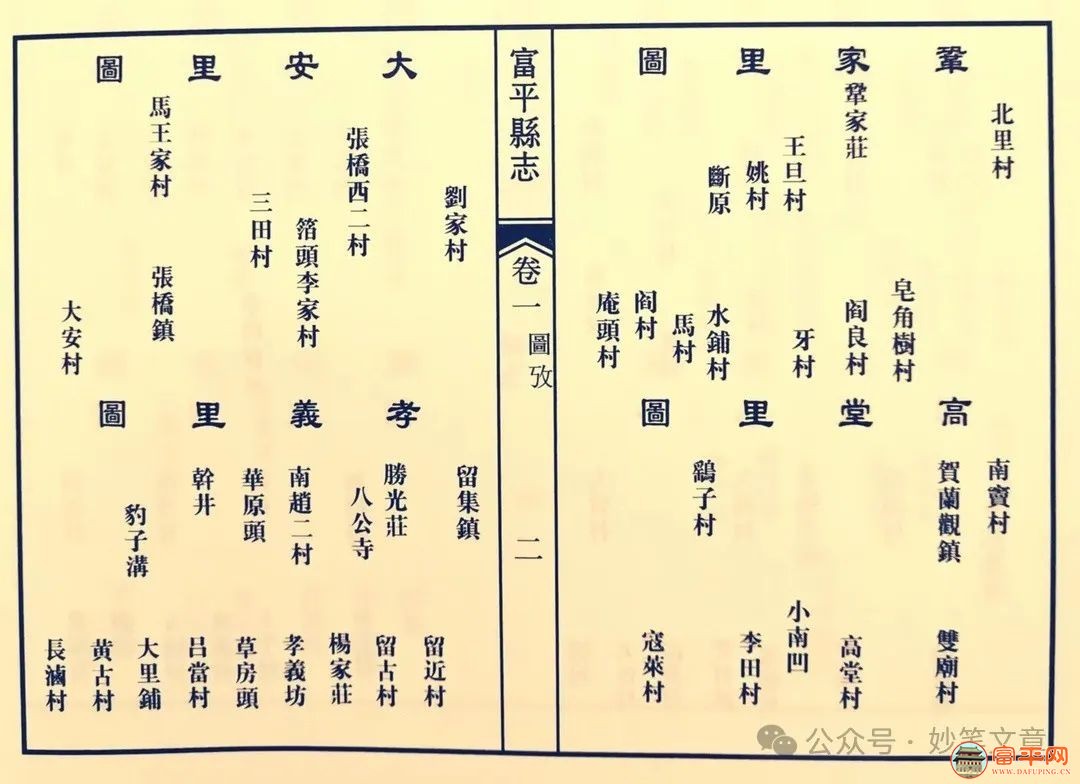 鞏家里圖
北里村
鞏家莊
王旦村
姚村
斷原
皂角樹村
閻良村
牙村
水鋪村
馬村
閻村
庵頭村
高堂里圖
南竇村
賀蘭觀鎮
鷂子村
雙廟村
高堂村
小南凹
李田村
寇萊村
富平縣志
卷一
圖攷
二
大安里圖
劉家村
張橋西二村
箔頭李家村
三田村
馬王家村
張橋鎮
大安村
孝義里圖
留集鎮
勝光莊
八公寺
南趙二村
華原頭
幹井
豹子溝
留近村
留古村
楊家莊
孝義坊
草房頭
呂當村
大里鋪
黄古村
長滷村
公众号·妙笔文章
富平网
WWW.DAFUPING.CN